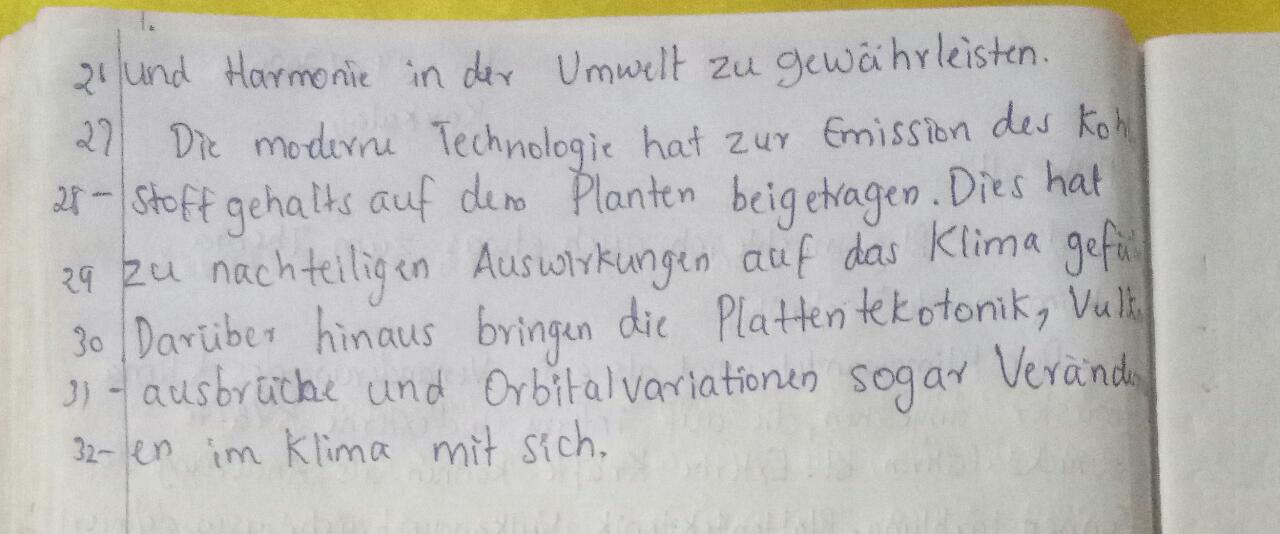 26 und Harmonie in der Umwelt zu gewährleisten.
27 Die moderne Technologie hat zur Emission des Koh
28- stoffgehalts auf dem Planten beigetragen. Dies hat
29 zu nachteiligen Auswirkungen auf das Klima gefü
30 Darüber hinaus bringen die Plattentekotonik, Vulk
31- ausbrüche und Orbitalvariationen sogar Veränd
32- en im Klima mit sich.